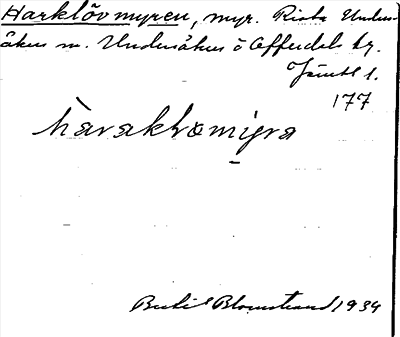 Harklövmyren, myr. Rista Unders-
åkers sn. Undersåkers o Offerdals tg.
Jämtl l.
177
hàraklvømỳra
Bertil Blomstrand 1934